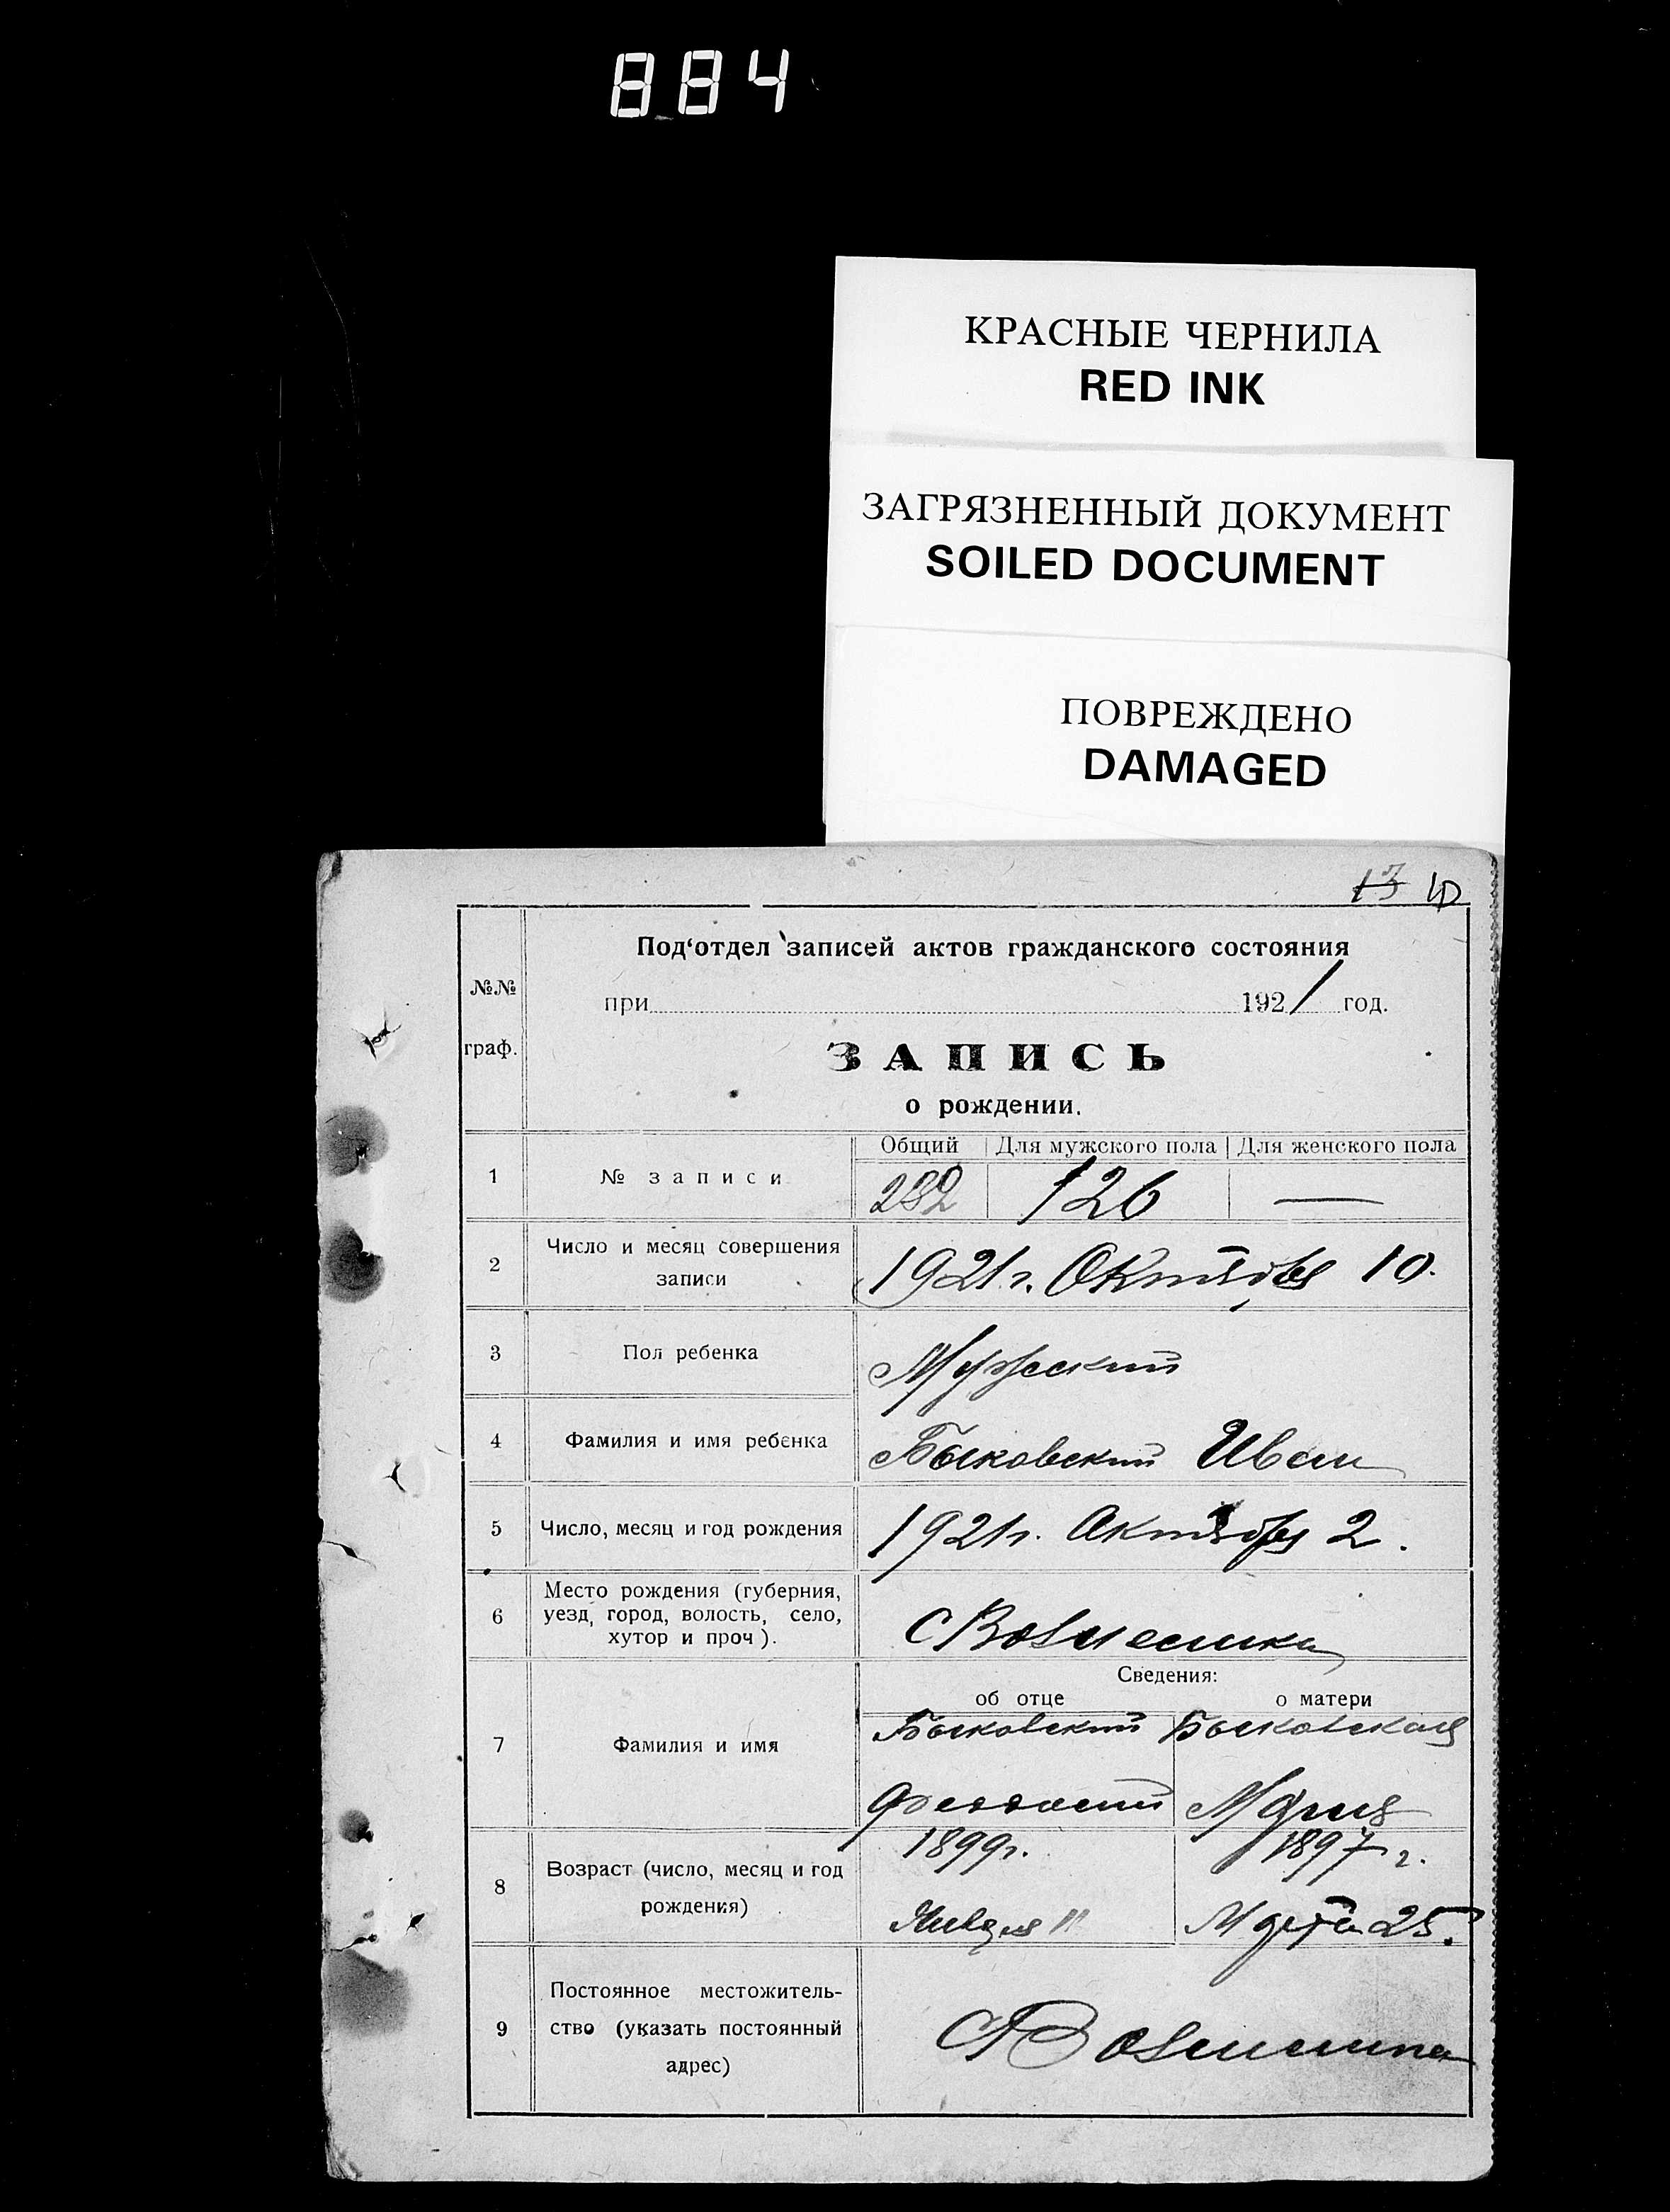 884
КРАСНЫЕ ЧЕРНИЛА
RED INK
ЗАГРЯЗНЕННЫЙ ДОКУМЕНТ
SOILED DOCUMENT
ПОВРЕЖДЕНО
DAMAGED
13
№№
граф.
Под‘отдел записей актов гражданского состояния
при 1921 год.
ЗАПИСЬ
о рождении.
Общий Для мужского пола Для женского пола
1 № записи 282 126 —
2 Число и месяц совершения
записи
1921 г. Октября 10.
3 Пол ребенка Мужеский
4 Фамилия и имя ребенка Быковский Иван
5 Число, месяц и год рождения 1921 г. Октября 2.
6 Место рождения (губерния,
уезд, город, волость, село,
хутор и проч).
С Вознесенка
Сведения:
об отце о матери
7 Фамилия и имя
Быковский Быковская
Феодосий Мария
8 Возраст (число, месяц и год
рождения)
1899 г. 1897 г.
Января 11 Марта 25.
9 Постоянное местожитель-
ство (указать постоянный
адрес)
С